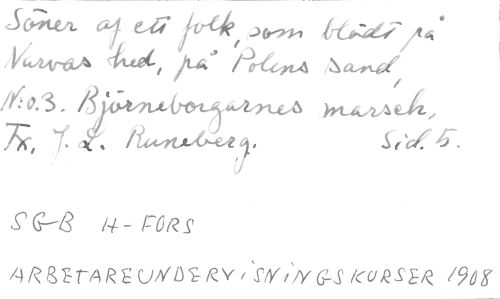 Söner af ett folk, som blödt på
Narvas hed, på Polens sand,
N:o.3. Björneborgarnes marsch,
Tx. J. L. Runeberg. Sid. 5.
SGB H-FORS
ARBETAREUNDERVISNINGSKURSER 1908